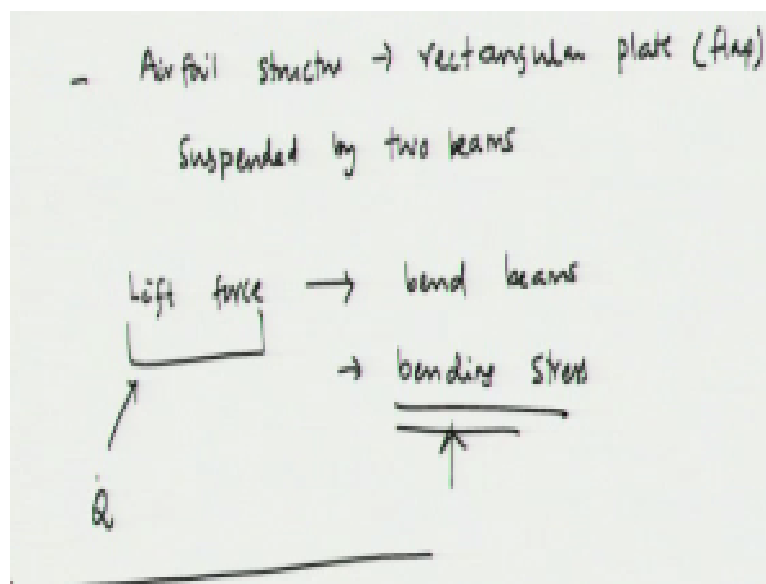 - Airfoil structur → rectangular plate (flap)
suspended by two beams
Lift force → bend beams
→ bending stress
Q̇